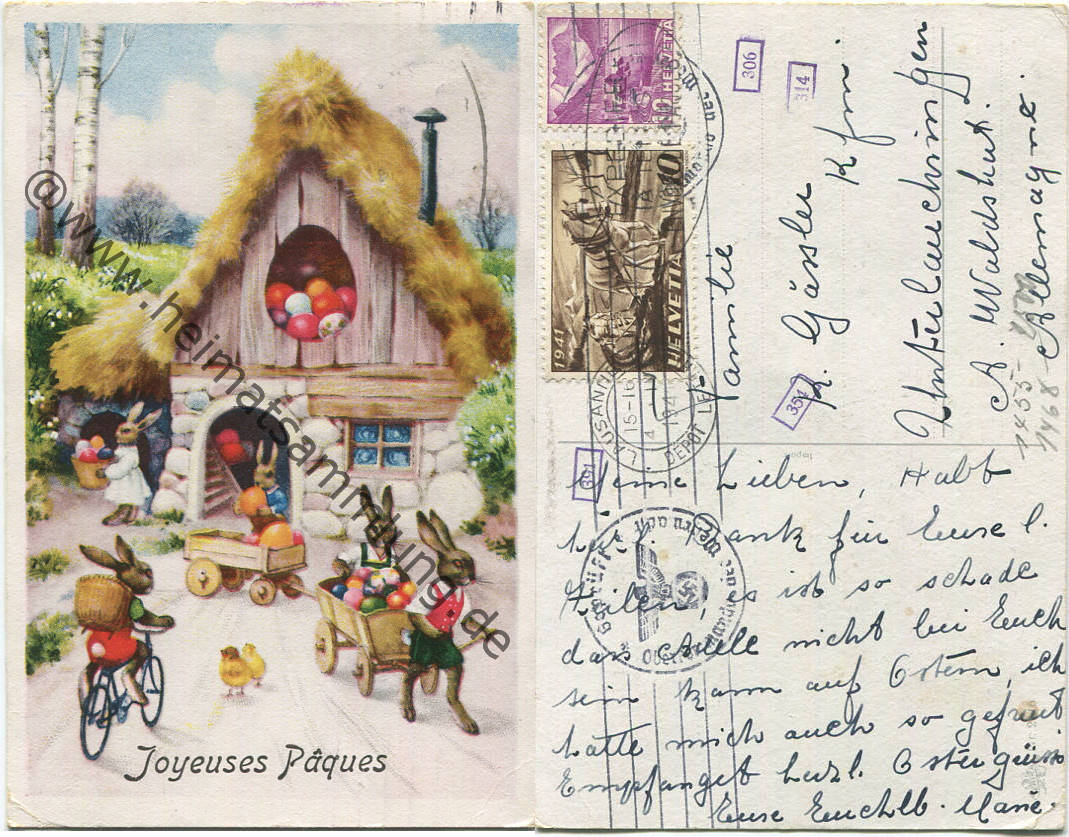 Joyeuses Pâques
@www.heimatsammlung.de
HELVETIA
10 HELVETIA
1941
306
314
351
391
LAUSANNE
DEPOT LE
15-16
Geprüft
Oberkommando der Wehrmacht
Familie
Gässler
Kfm
Unterlauchringen
A. Waldshut.
Allemagne
1455-
1468
Import
Meine Lieben, Habt
herzl. Dank für Eure l.
Zeilen, es ist so schade
dass nicht bei Euch
sein kann auf Ostern, ich
hatte mich auch so gefreut
Empfanget herzl. Ostergrüsse
Eure Euchlb. Marie.